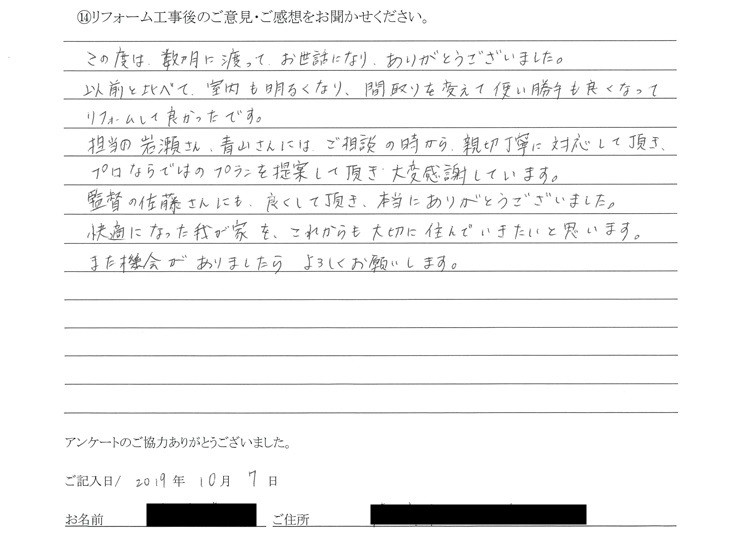 ⑭リフォーム工事後のご意見・ご感想をお聞かせください。
この度は、数ヶ月に渡って、お世話になり、ありがとうございました。
以前と比べて、室内も明るくなり、間取りを変えて使い勝手も良くなって
リフォームして良かったです。
担当の岩瀬さん、青山さんには、ご相談の時から、親切丁寧に対応して頂き、
プロならではのプランを提案して頂き大変感謝しています。
監督の佐藤さんにも、良くして頂き、本当にありがとうございました。
快適になった我が家を、これからも大切に住んでいきたいと思います。
また機会がありましたら よろしくお願いします。
アンケートのご協力ありがとうございました。
ご記入日/ 2019年 10月 7日
お名前 ご住所